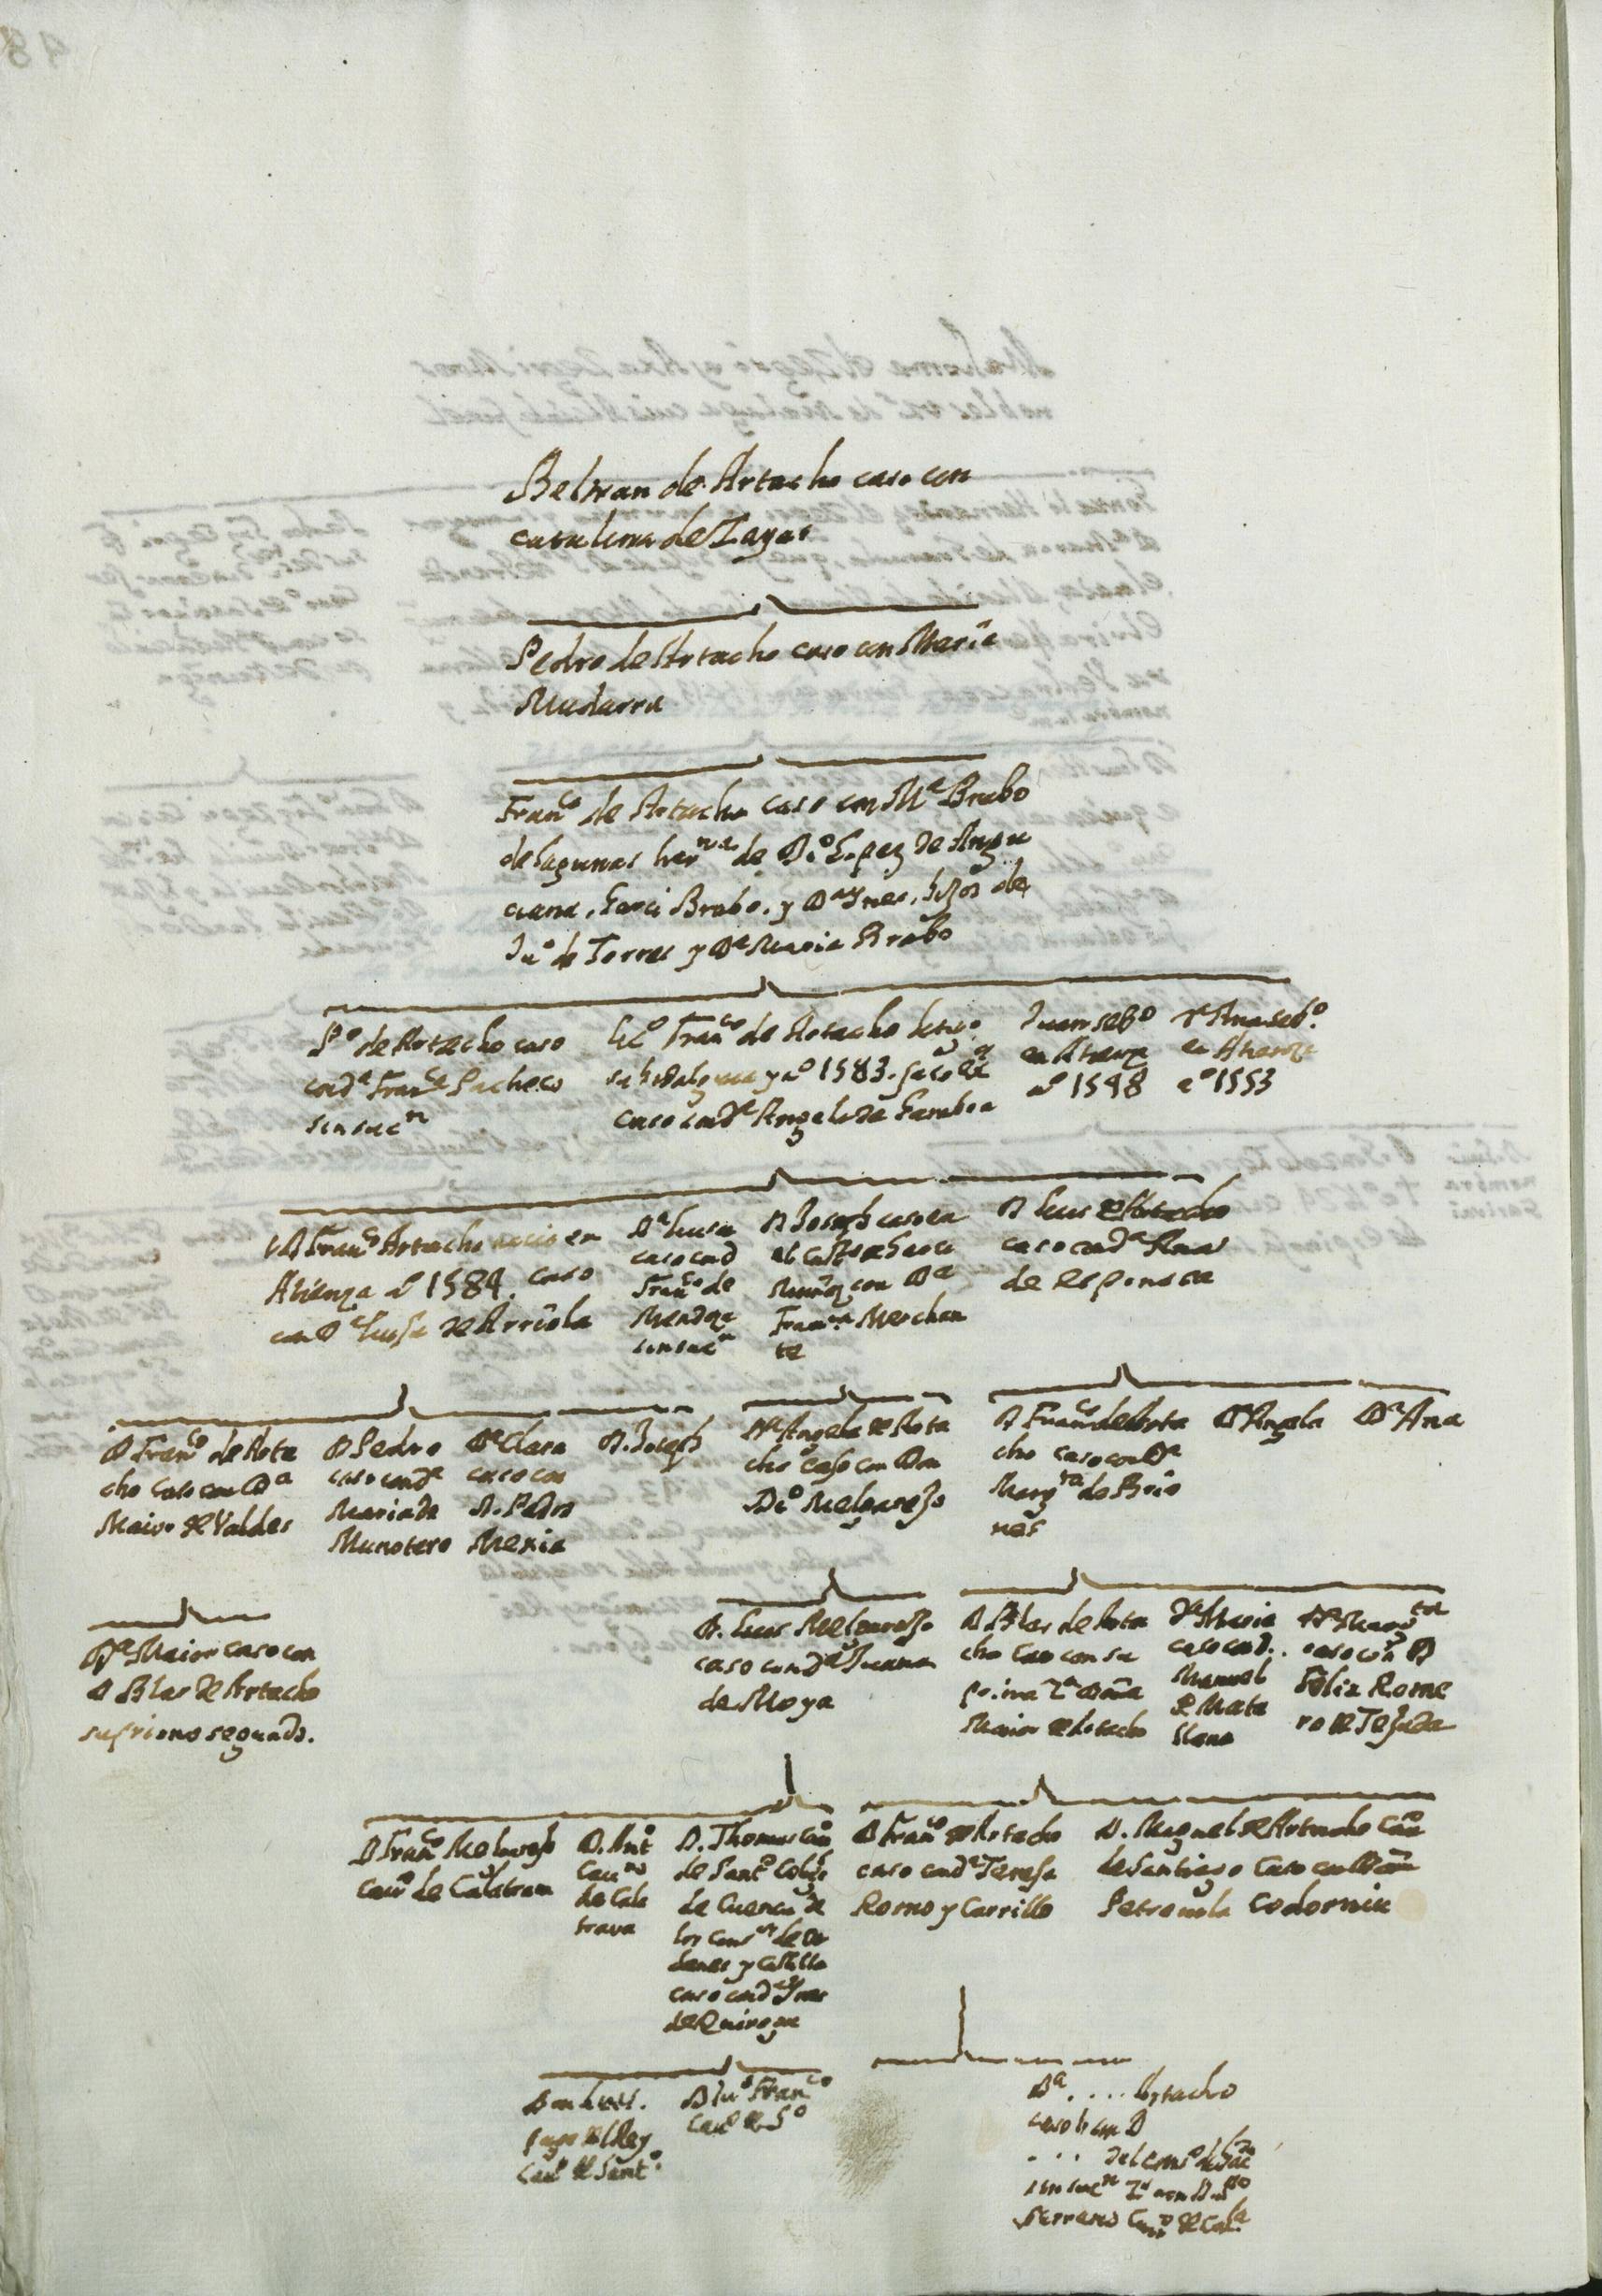 Beltran de Artacho caso con
catalina de Zayas
Pedro de Artacho caso con Maria
Madarra
Franco de Artacho caso con Mª Brabo
de lagunas herna de Dio Lopez de Angu
ciana, Garci Brabo, y Dª Ynes, hijos de
Juo de Torres y Dª Maria Brabo
Pº de Artacho caso
con dª Franca Pacheco
sin sucn
Licº Franco de Artacho letigo
su hidalguia y aº 1583. saco ex
caso con dª Angela de Gamboa
Juan sebº
en Atienza
aº 1548
Dª Ana sebº.
en Atienza
aº 1553
D Franco Artacho nacio en
Atienza aº 1584. caso
con Dª Luisa de Arriola
Dª Luisa
caso con d
Franco de
Mendoza
sin sucn
D Joseph caso en
el Castº de Garci
Muñoz con Dª
Franca Merchan
te
D Luis de Artacho
caso con dª Ana
de espinosa
D Franco de Arta
cho caso con Dª
Maior de Valdes
D Pedro
caso con dª
Maria de
Munotero
Dª Clara
caso con
D. Pedro
Mexia
D. Joseph
Dª Angela de Arta
cho caso con Don
Diº Melgarejo
D Franco de Arta
cho caso con Dª
Margta de Brio
nes
Dª Angela
Dª Ana
Dª Maior caso con
D Blas de Artacho
su primo segundo.
D. Luis Melgarejo
caso con dª Juana
de Moya
D Blas de Arta
cho caso con su
prima 2ª Doña
Maior de Artacho
Dª Maria
caso con d.
Manuel
de Mata
llana
Dª Margta
caso con D
Felix Rome
ro de Tejada
D Franco Melgarejo
cauo de Calatraua
D. Ant
Cauro
de Cala
traua
D. Thomas Cauo
de Santº Colegl
de Cuenca de
los Conos de Or
denes y Castilla
caso con dª Ynes
de Quiroga
D Franco de Artacho
caso con dª Teresa
Romo y Carrillo
D. Miguel de Artacho Cauo
de Santiago Caso con Doña
Petronila Codorniu
Don Luis.
page del Rey
Cauo de Santº.
D Luº Franco
Cauº de Sº
Dª .... Artacho
caso con D
.... del consº de
sin sucn 2ª con D
Serrano Cauo de Cala